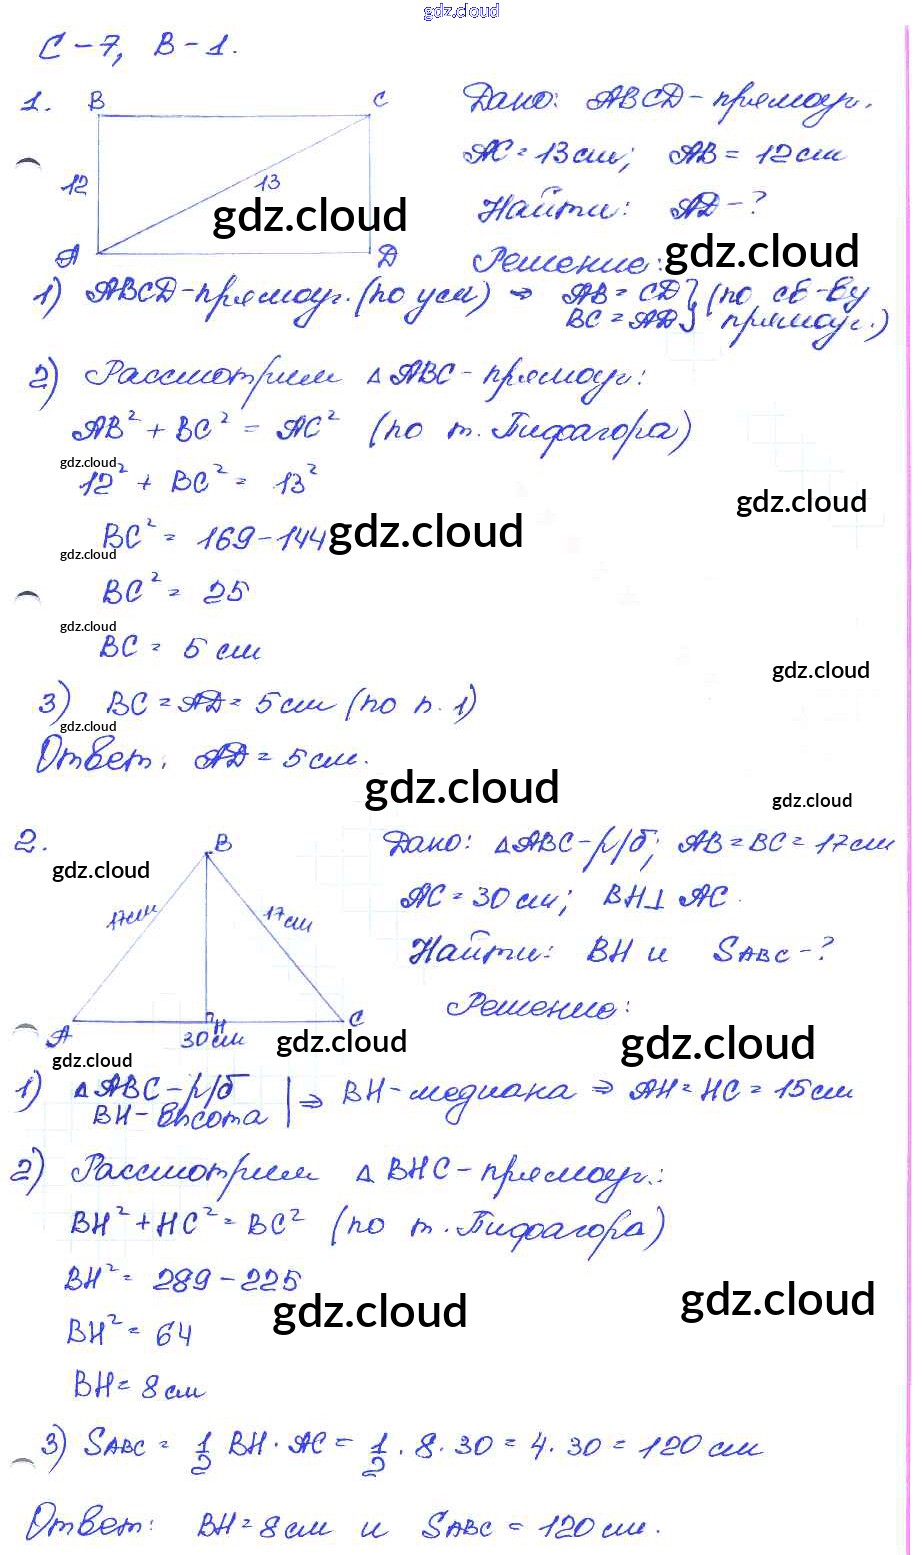 gdz.cloud
С-7, В-1.
1. B C
12 13
A D
Дано: ABCD-прямоуг.
AC=13см; AB=12см
Найти: AD-?
Решение:
gdz.cloud
gdz.cloud
1) ABCD-прямоуг. (по усл) ⇒ AB=CD} (по св-ву
BC=AD} прямоуг.)
2) Рассмотрим △ABC-прямоуг:
AB²+BC²=AC² (по т. Пифагора)
gdz.cloud
12²+BC²=13²
gdz.cloud
BC²=169-144
gdz.cloud
gdz.cloud
BC²=25
gdz.cloud
BC=5см
gdz.cloud
3) BC=AD=5см (по п.1)
gdz.cloud
Ответ: AD=5см.
gdz.cloud
gdz.cloud
2. B
gdz.cloud
17см 17см
A H C
30см
gdz.cloud
gdz.cloud
Дано: △ABC-р/б; AB=BC=17см
AC=30см; BH⊥AC.
Найти: BH и SABC-?
Решение:
gdz.cloud
1) △ABC-р/б
BH-высота | ⇒ BH-медиана ⇒ AH=HC=15см
2) Рассмотрим △BHC-прямоуг.:
BH²+HC²=BC² (по т. Пифагора)
BH²=289-225
gdz.cloud
gdz.cloud
BH²=64
BH=8см
3) SABC = 1/2 BH·AC = 1/2·8·30=4·30=120см
Ответ: BH=8см и SABC=120см.